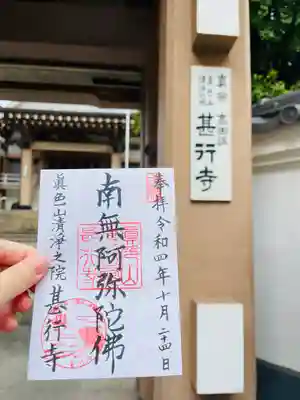 真宗 高田派
甚行寺
奉拝 令和四年十月二十四日
南無阿弥陀佛
眞色山清浄之院 甚行寺